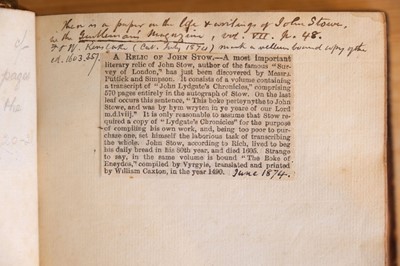 There is a paper on the life & writings of John Stowe,
in the Gentlemans Magazine, vol. VII. p. 48.
(Cat. July 1874) mark a vellum bound copy of the
ed. 1603.
A RELIC OF JOHN STOW.—A most important
literary relic of John Stow, author of the famous "Sur-
vey of London," has just been discovered by Messrs
Puttick and Simpson. It consists of a volume containing
a transcript of "John Lydgate's Chronicles," comprising
570 pages entirely in the autograph of Stow. On the last
leaf occurs this sentence, "This boke pertaynythe to John
Stowe, and was by hym wryten in ye yeare of our Lord
m.d.lviij." It is only reasonable to assume that Stow re-
quired a copy of "Lydgate's Chronicles" for the purpose
of compiling his own work, and, being too poor to pur-
chase one, set himself the laborious task of transcribing
the whole. John Stow, according to Rich, lived to beg
his daily bread in his 80th year, and died 1605. Strange
to say, in the same volume is bound "The Boke of
Eneydos," compiled by Vyrgyle, translated and printed
by William Caxton, in the year 1490. June 1874.
the